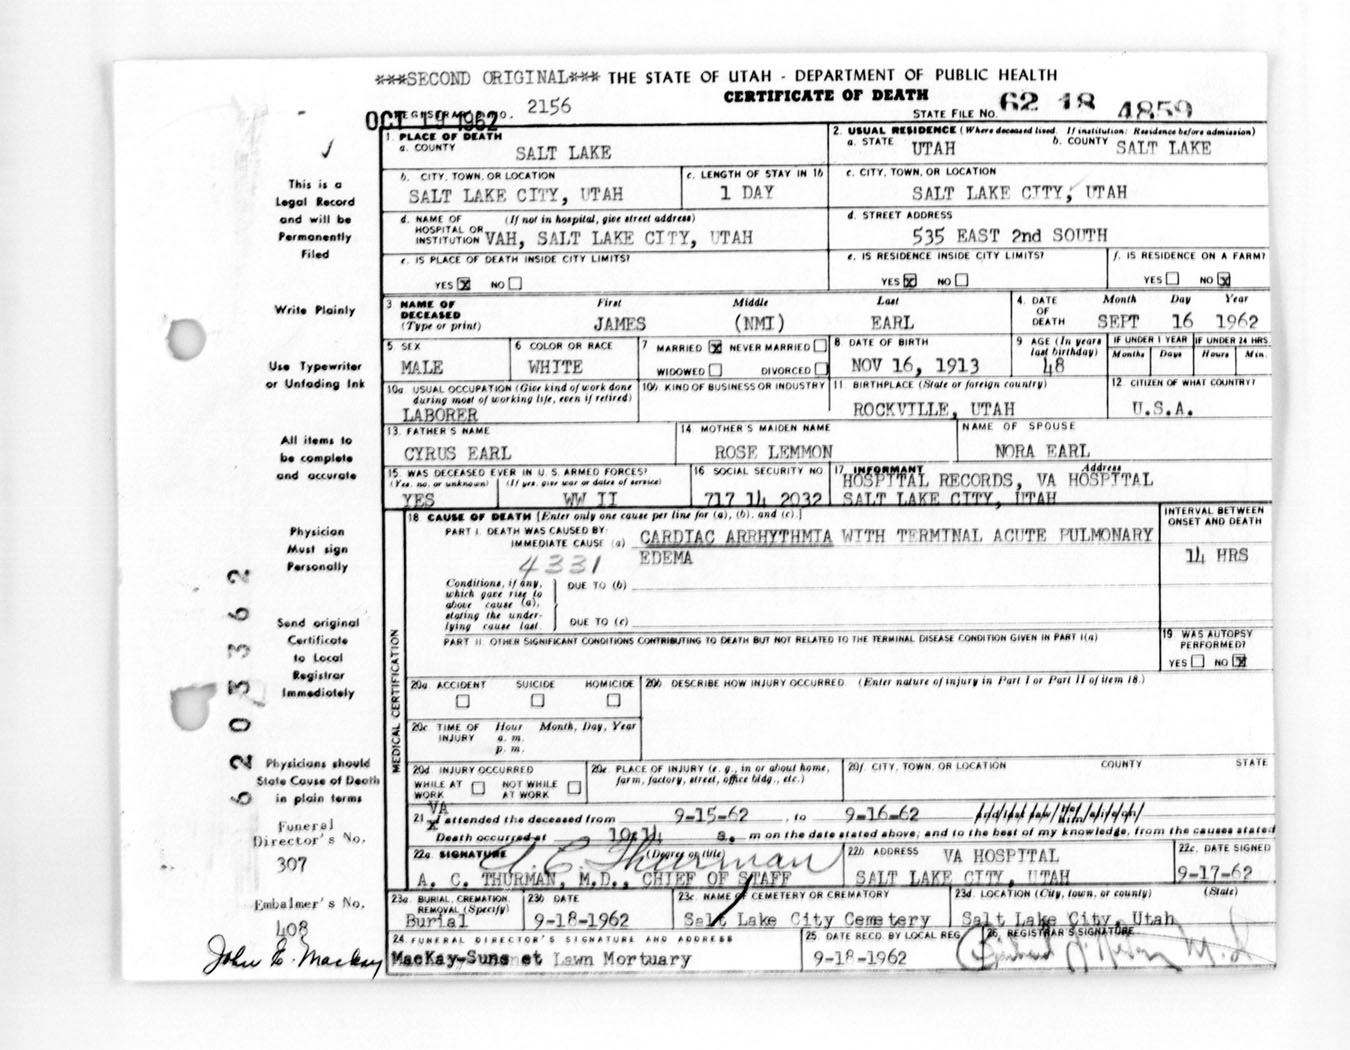 ***SECOND ORIGINAL*** THE STATE OF UTAH - DEPARTMENT OF PUBLIC HEALTH
CERTIFICATE OF DEATH
OCT 19 1962 REGISTRAR'S NO. 2156 STATE FILE NO. 62 18 4859
1. PLACE OF DEATH
a. COUNTY SALT LAKE
2. USUAL RESIDENCE (Where deceased lived. If institution: Residence before admission)
a. STATE UTAH b. COUNTY SALT LAKE
b. CITY, TOWN, OR LOCATION
SALT LAKE CITY, UTAH
c. LENGTH OF STAY IN 1b
1 DAY
c. CITY, TOWN, OR LOCATION
SALT LAKE CITY, UTAH
d. NAME OF HOSPITAL OR INSTITUTION (If not in hospital, give street address)
VAH, SALT LAKE CITY, UTAH
d. STREET ADDRESS
535 EAST 2nd SOUTH
e. IS PLACE OF DEATH INSIDE CITY LIMITS?
YES X NO
e. IS RESIDENCE INSIDE CITY LIMITS?
YES X NO
f. IS RESIDENCE ON A FARM?
YES NO X
3 NAME OF DECEASED (Type or print)
First Middle Last
JAMES (NMI) EARL
4. DATE OF DEATH
Month Day Year
SEPT 16 1962
5. SEX
MALE
6 COLOR OR RACE
WHITE
7 MARRIED X NEVER MARRIED
WIDOWED DIVORCED
8. DATE OF BIRTH
NOV 16, 1913
9 AGE (In years last birthday)
48
IF UNDER 1 YEAR
Months Days
IF UNDER 24 HRS.
Hours Min.
10a USUAL OCCUPATION (Give kind of work done during most of working life, even if retired)
LABORER
10b. KIND OF BUSINESS OR INDUSTRY
11 BIRTHPLACE (State or foreign country)
ROCKVILLE, UTAH
12 CITIZEN OF WHAT COUNTRY?
U.S.A.
13. FATHER'S NAME
CYRUS EARL
14 MOTHER'S MAIDEN NAME
ROSE LEMMON
NAME OF SPOUSE
NORA EARL
15. WAS DECEASED EVER IN U. S. ARMED FORCES?
(Yes, no, or unknown) (If yes, give war or dates of service)
YES WW II
16 SOCIAL SECURITY NO
717 14 2032
17 INFORMANT Address
HOSPITAL RECORDS, VA HOSPITAL
SALT LAKE CITY, UTAH
MEDICAL CERTIFICATION
18 CAUSE OF DEATH [Enter only one cause per line for (a), (b), and (c).]
INTERVAL BETWEEN ONSET AND DEATH
PART I. DEATH WAS CAUSED BY:
IMMEDIATE CAUSE (a) CARDIAC ARRHYTHMIA WITH TERMINAL ACUTE PULMONARY
EDEMA
14 HRS
4331
Conditions, if any, which gave rise to above cause (a), stating the underlying cause last.
DUE TO (b)
DUE TO (c)
PART II. OTHER SIGNIFICANT CONDITIONS CONTRIBUTING TO DEATH BUT NOT RELATED TO THE TERMINAL DISEASE CONDITION GIVEN IN PART I(a)
19 WAS AUTOPSY PERFORMED?
YES NO X
20a. ACCIDENT SUICIDE HOMICIDE
20b. DESCRIBE HOW INJURY OCCURRED. (Enter nature of injury in Part I or Part II of item 18.)
20c TIME OF INJURY Hour Month, Day, Year
a. m.
p. m.
20d INJURY OCCURRED
WHILE AT WORK NOT WHILE AT WORK
20e. PLACE OF INJURY (e. g., in or about home, farm, factory, street, office bldg., etc.)
20f. CITY, TOWN, OR LOCATION COUNTY STATE
VA
21. I attended the deceased from 9-15-62, to 9-16-62
Death occurred at 10:14 a. m on the date stated above; and to the best of my knowledge, from the causes stated
22a. SIGNATURE (Degree or title)
A. C. Thurman
A. C. THURMAN, M.D., CHIEF OF STAFF
22b ADDRESS VA HOSPITAL
SALT LAKE CITY, UTAH
22c. DATE SIGNED
9-17-62
23a. BURIAL, CREMATION, REMOVAL (Specify)
Burial
23b. DATE
9-18-1962
23c. NAME OF CEMETERY OR CREMATORY
Salt Lake City Cemetery
23d. LOCATION (City, town, or county) (State)
Salt Lake City, Utah
24. FUNERAL DIRECTOR'S SIGNATURE AND ADDRESS
MacKay-Sunset Lawn Mortuary
25. DATE RECD. BY LOCAL REG.
9-18-1962
26. REGISTRAR'S SIGNATURE
This is a
Legal Record
and will be
Permanently
Filed
Write Plainly
Use Typewriter
or Unfading Ink
All items to
be complete
and accurate
Physician
Must sign
Personally
Send original
Certificate
to Local
Registrar
Immediately
Physicians should
State Cause of Death
in plain terms
Funeral
Director's No.
307
Embalmer's No.
408
John E. Mackay
6203362